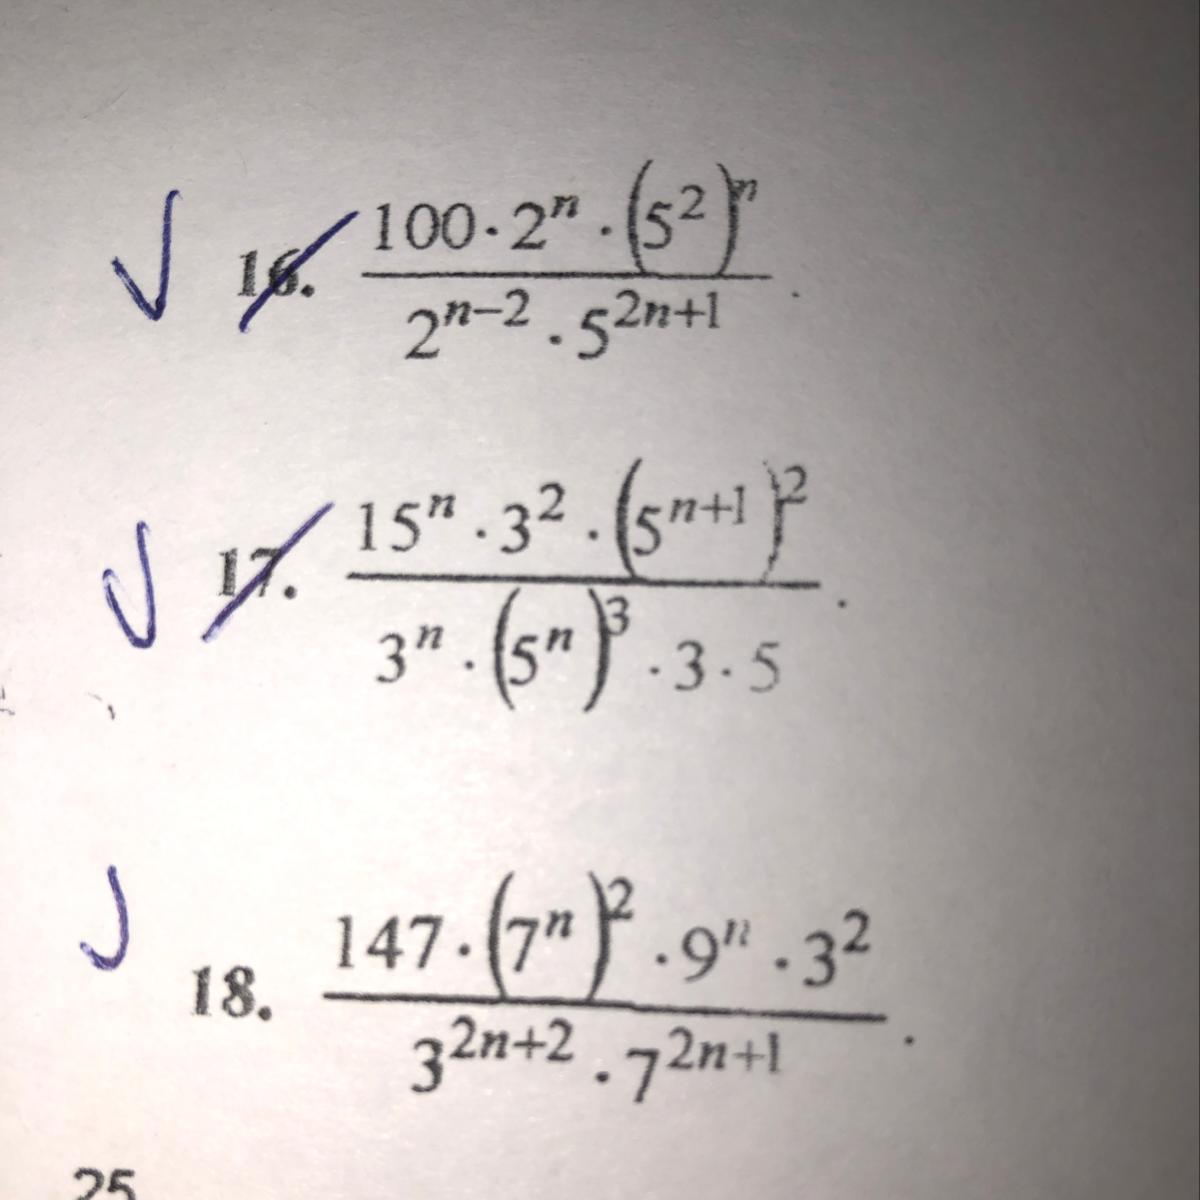 16. \frac{100 \cdot 2^{n} \cdot (5^{2})^{n}}{2^{n-2} \cdot 5^{2n+1}}.
17. \frac{15^{n} \cdot 3^{2} \cdot (5^{n+1})^{2}}{3^{n} \cdot (5^{n})^{3} \cdot 3 \cdot 5}.
18. \frac{147 \cdot (7^{n})^{2} \cdot 9^{n} \cdot 3^{2}}{3^{2n+2} \cdot 7^{2n+1}}.
25